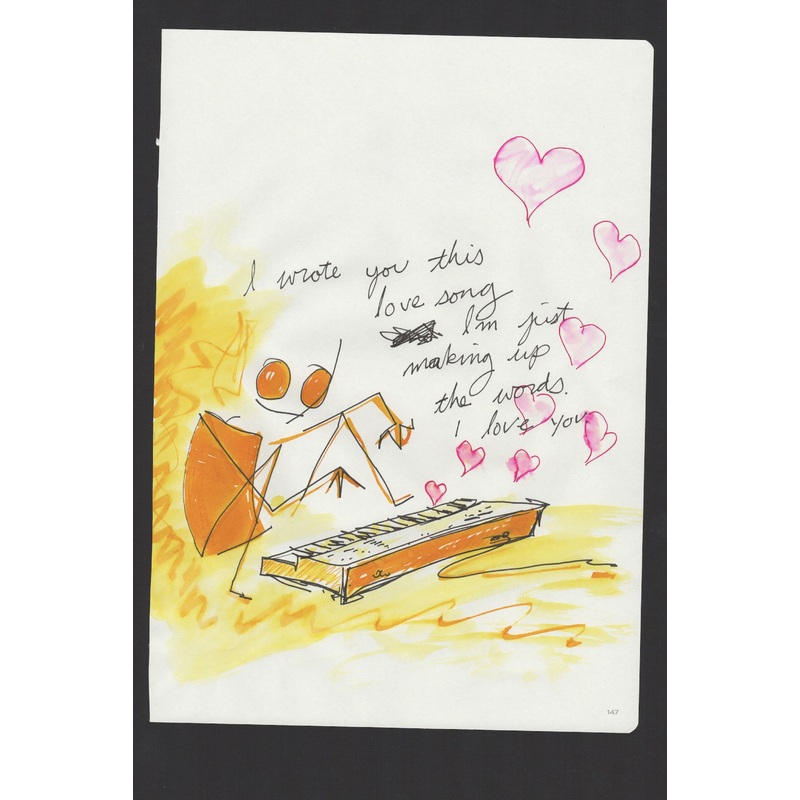 I wrote you this
love song
I'm just
making up
the words.
I love you.
147